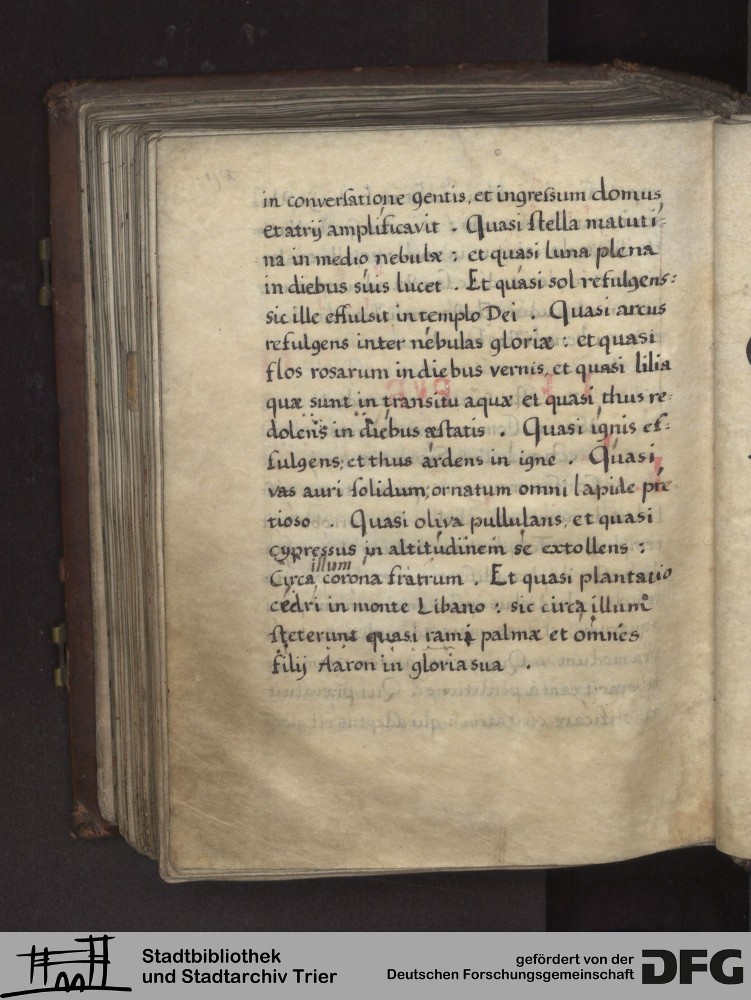 in conversatione gentis, et ingressum domus
et atrij amplificavit . Quasi stella matuti-
na in medio nebulæ : et quasi luna plena
in diebus suis lucet . Et quasi sol refulgens :
sic ille effulsit in templo Dei . Quasi arcus
refulgens inter nebulas gloriæ : et quasi
flos rosarum in diebus vernis, et quasi lilia
quæ sunt in transitu aquæ et quasi thus re-
dolens in diebus æstatis . Quasi ignis ef-
fulgens; et thus ardens in igne . Quasi
vas auri solidum; ornatum omni lapide pre
tioso . Quasi oliva pullulans, et quasi
cypressus in altitudinem se extollens :
illum
Circa corona fratrum . Et quasi plantatio
cedri in monte Libano : sic circa illum
steterunt quasi rami palmæ et omnes
filij Aaron in gloria sua .
Stadtbibliothek
und Stadtarchiv Trier
gefördert von der
Deutschen Forschungsgemeinschaft
DFG